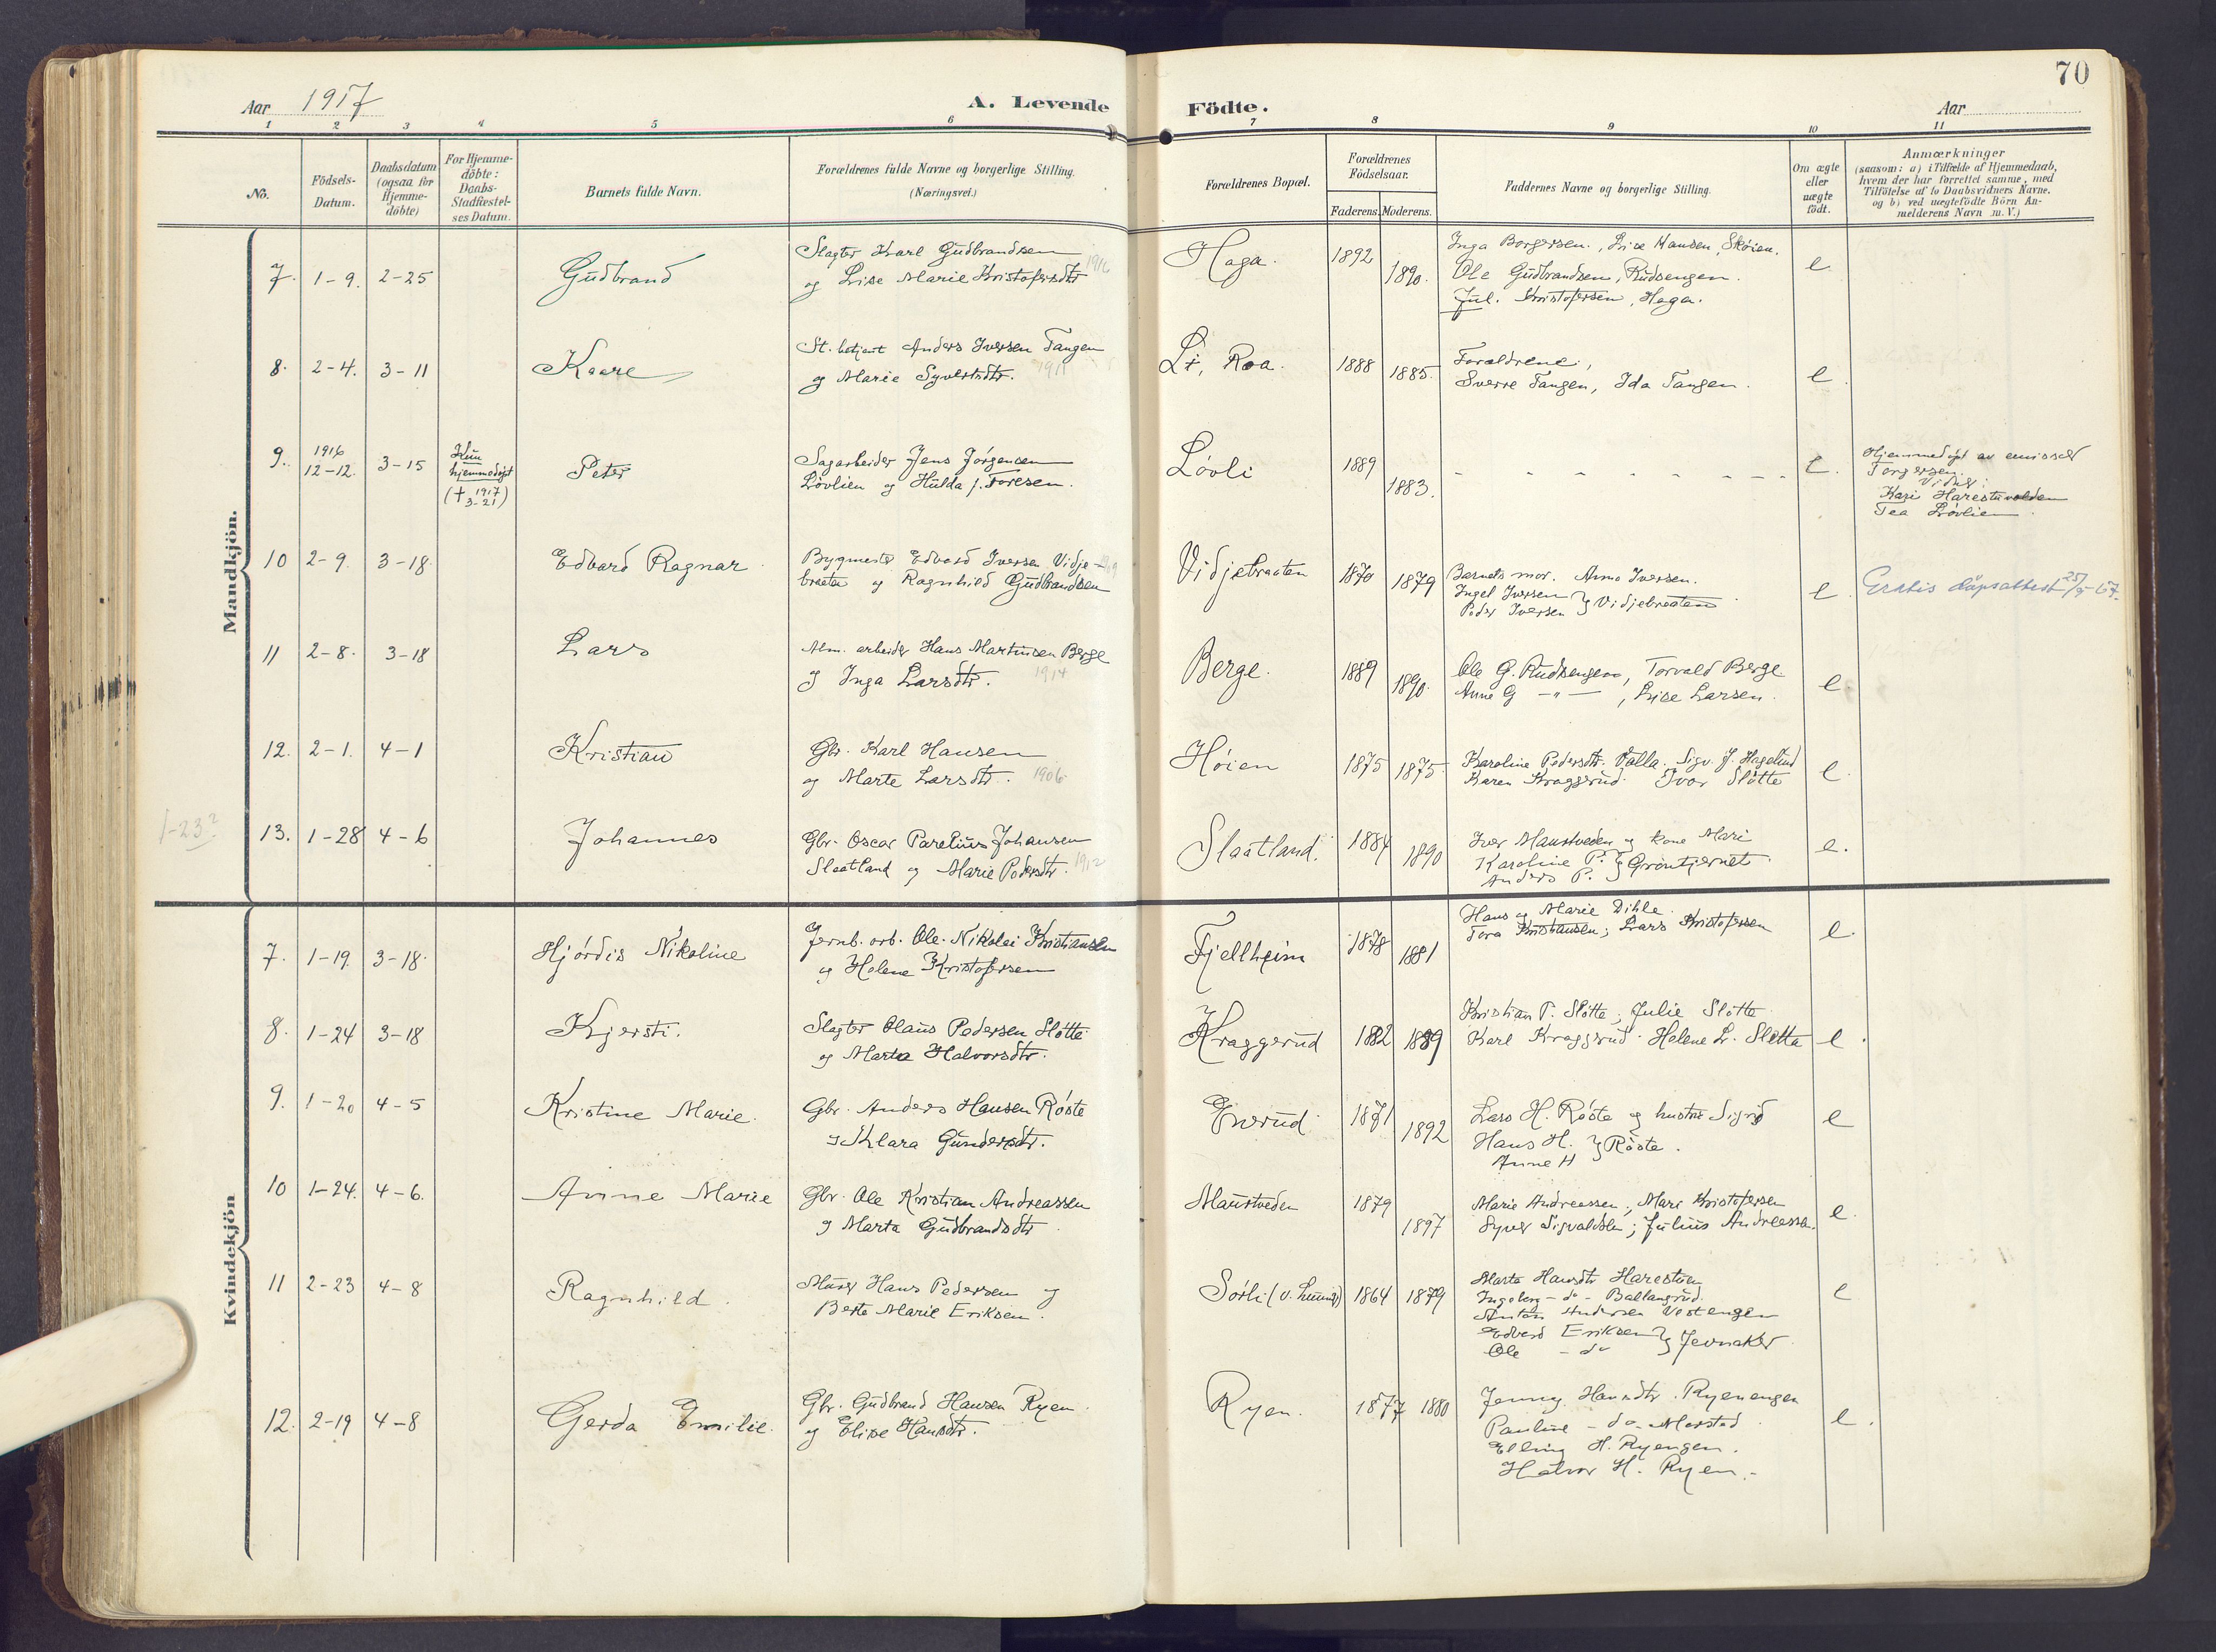 70
Aar 1917
A. Levende Födte.
Aar
1 2 3 4 5 6 7 8 9 10 11
No.
Födsels-
Datum.
Daabsdatum
(ogsaa for
Hjemme-
döbte)
For Hjemme-
döbte:
Daabs-
Stadfæstel-
ses Datum.
Barnets fulde Navn.
Forældrenes fulde Navne og borgerlige Stilling.
(Næringsvei.)
Forældrenes Bopæl.
Forældrenes
Födselsaar.
Faderens. Moderens.
Faddernes Navne og borgerlige Stilling.
Om ægte
eller
uægte
födt.
Anmærkninger
(saasom: a) i Tilfælde af Hjemmedaab,
hvem der har forrettet samme, med
Tilföielse af to Daabsvidners Navne.
og b) ved uægtefödte Börn An-
melderens Navn m. V.)
Mandkjön.
7. 1-9. 2-25 Gudbrand
Slagter Karl Gudbrandsen
og Lise Marie Kristofersdtr 1916
Haga. 1892 1890.
Inga Borgersen., Lise Hansen, Skøien.
Ole Gudbrandsen, Rudsengen.
Jul. Kristofersen, Hagen.
e.
8. 2-4. 3-11 Kaare
St. betjent Anders Iversen Tangen
og Marie Syverstdtr. 1911
Li, Roa. 1888 1885.
Forældrene,
Sverre Tangen, Ida Tangen.
e.
9. 1916
12-12. 3-15
Kun
hjemmedøpt
(† 1917
3-21)
Peter
Sagarbeider Jens Jørgensen
Løvlien og Hulda J. Toresen.
Løvli 1889 1883.
e.
Hjemmedøpt av emissær
Torgersen.
Vidner:
Kari Harestuvolden
Tea Løvlien.
10 2-9. 3-18. Edvard Ragnar
Bygmester Edvard Iversen Vidje-
braaten og Ragnhild Gudbrandsen
Vidjebraaten 1870 1879
Barnets mor. Anna Iversen.
Ingel Iversen
Peder Iversen } Vidjebraaten
e.
Gratis dåpsattest 25/9-67.
11 2-8. 3-18 Lars
Alm. arbeider Hans Martinsen Berge
og Inga Larsdtr. 1914
Berge. 1889 1890.
Ole G. Rudsengen, Torvald Berge
Anne G — " — , Lise Larsen.
e.
12. 2-1. 4-1 Kristian
Gbr. Karl Hansen
og Marte Larsdtr. 1906
Høien 1875 1875.
Karoline Pedersdtr. Valla. Sigv. J. Hagelund
Karen Kraggerud. Ivar Sløtte
e.
1-23?
13. 1-28 4-6 Johannes
Gbr. Oscar Parelius Johansen
Slaatland og Marie Pedersdtr. 1912
Slaatland. 1884 1890
Iver Maustveden og kone Mari
Karoline P.
Anders P. } Grøntjernet.
e.
Kvindekjön
7. 1-19. 3-18. Hjørdis Nikoline
Jernb. arb. Ole Nikolai Kristiansen
og Helene Kristofersen
Fjellheim 1878 1881
Hans og Marie Dihle.
Tora Kristiansen; Lars Kristofersen
e.
8. 1-24 3-18 Kjersti.
Slagter Olaus Pedersen Sløtte
og Marta Halvorsdtr.
Kraggerud 1882 1889
Kristian P. Sløtte; Julie Sløtte
Karl Kraggerud. Helene L. Sletta
e.
9. 1-20 4-5 Kristine Marie.
Gbr. Anders Hansen Røste
og Klara Gundersdtr.
Enerud. 1871 1892
Lars H. Røste og hustru Sigrid
Hans H.
Anne H } Røste.
e
10 1-24. 4-6. Anne Marie
Gbr. Ole Kristian Andreassen
og Marta Gudbrandsdtr
Maustveden 1879 1897
Marie Andreassen; Mari Kristofersen
Syver Sigvaldsen; Julius Andreassen.
e.
11 2-23 4-8 Ragnhild.
Murer Hans Pedersen og
Berte Marie Eriksen.
Sørli (v. Lunner) 1864 1879
Marta Hansdtr Harestuen
Ingeborg -do- Ballangrud.
Anton Andersen Vestengen
Edvard Eriksen
Ole - do } Jevnaker
e
12. 2-19 4-8 Gerda Emilie.
Gbr. Gudbrand Hansen Ryen.
og Elise Hansdtr.
Ryen. 1877 1880
Jenny Hansdtr. Ryenengen
Pauline - do - Morstad
Elling H. Ryengen.
Halvor H. Ryen.
e.